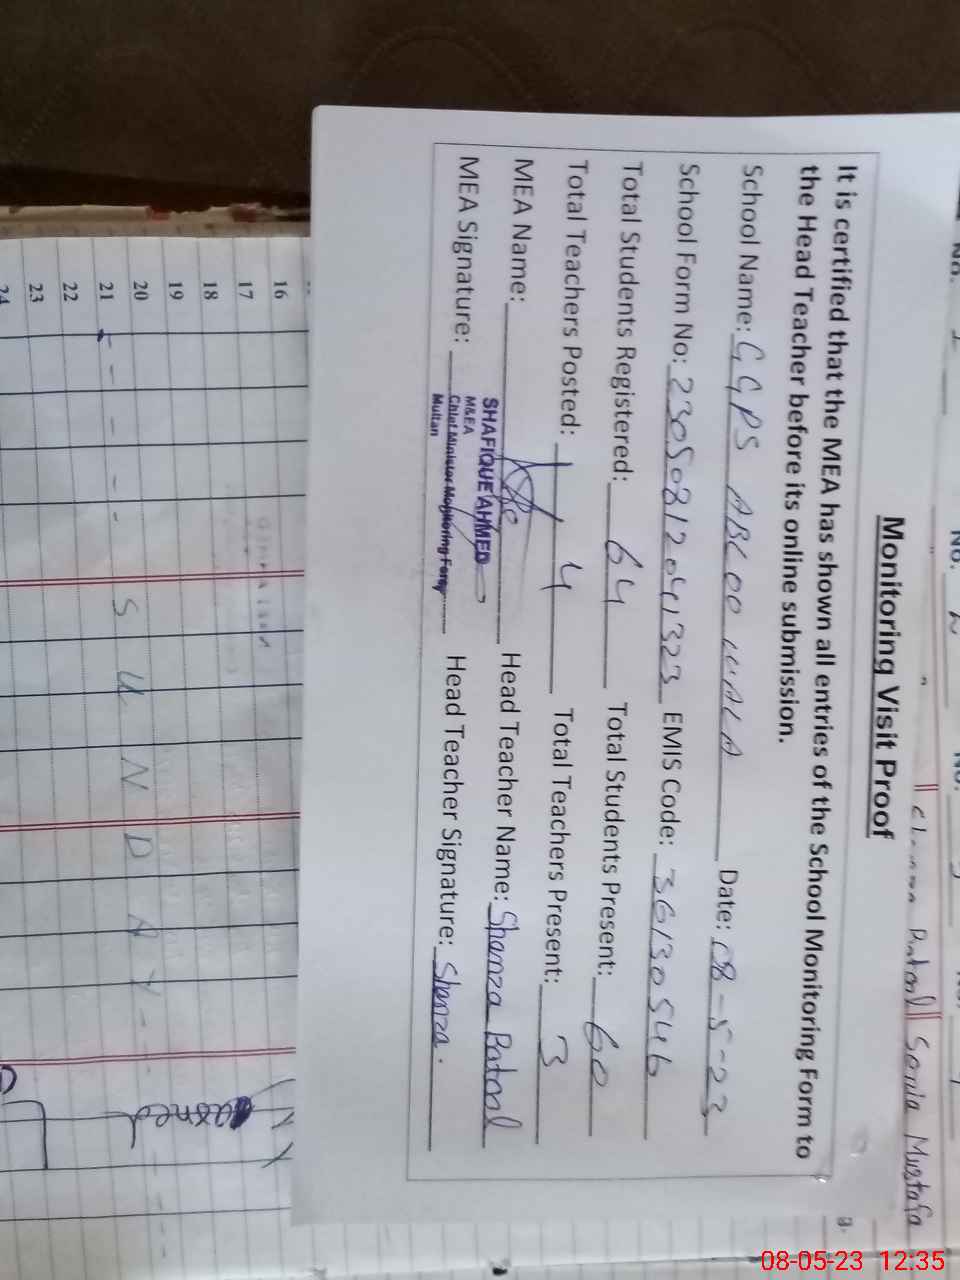 Monitoring Visit Proof
It is certified that the MEA has shown all entries of the School Monitoring Form to
the Head Teacher before its online submission.
School Name: GGPS ABC OO WALA Date: 08-5-23
School Form No: 23050812041323 EMIS Code: 36130546
Total Students Registered: 64 Total Students Present: 60
Total Teachers Posted: 4 Total Teachers Present: 3
MEA Name: Head Teacher Name: Shanza Batool
SHAFIQUE AHMED
M&EA
Chief Minister Monitoring Force
Multan
MEA Signature: Head Teacher Signature: Shanza.
No. 1 No. 2 No. No.
Batool Sonia Mustafa
16
17
18
19
20
21
22
23
24
SUNDAY
08-05-23 12:35